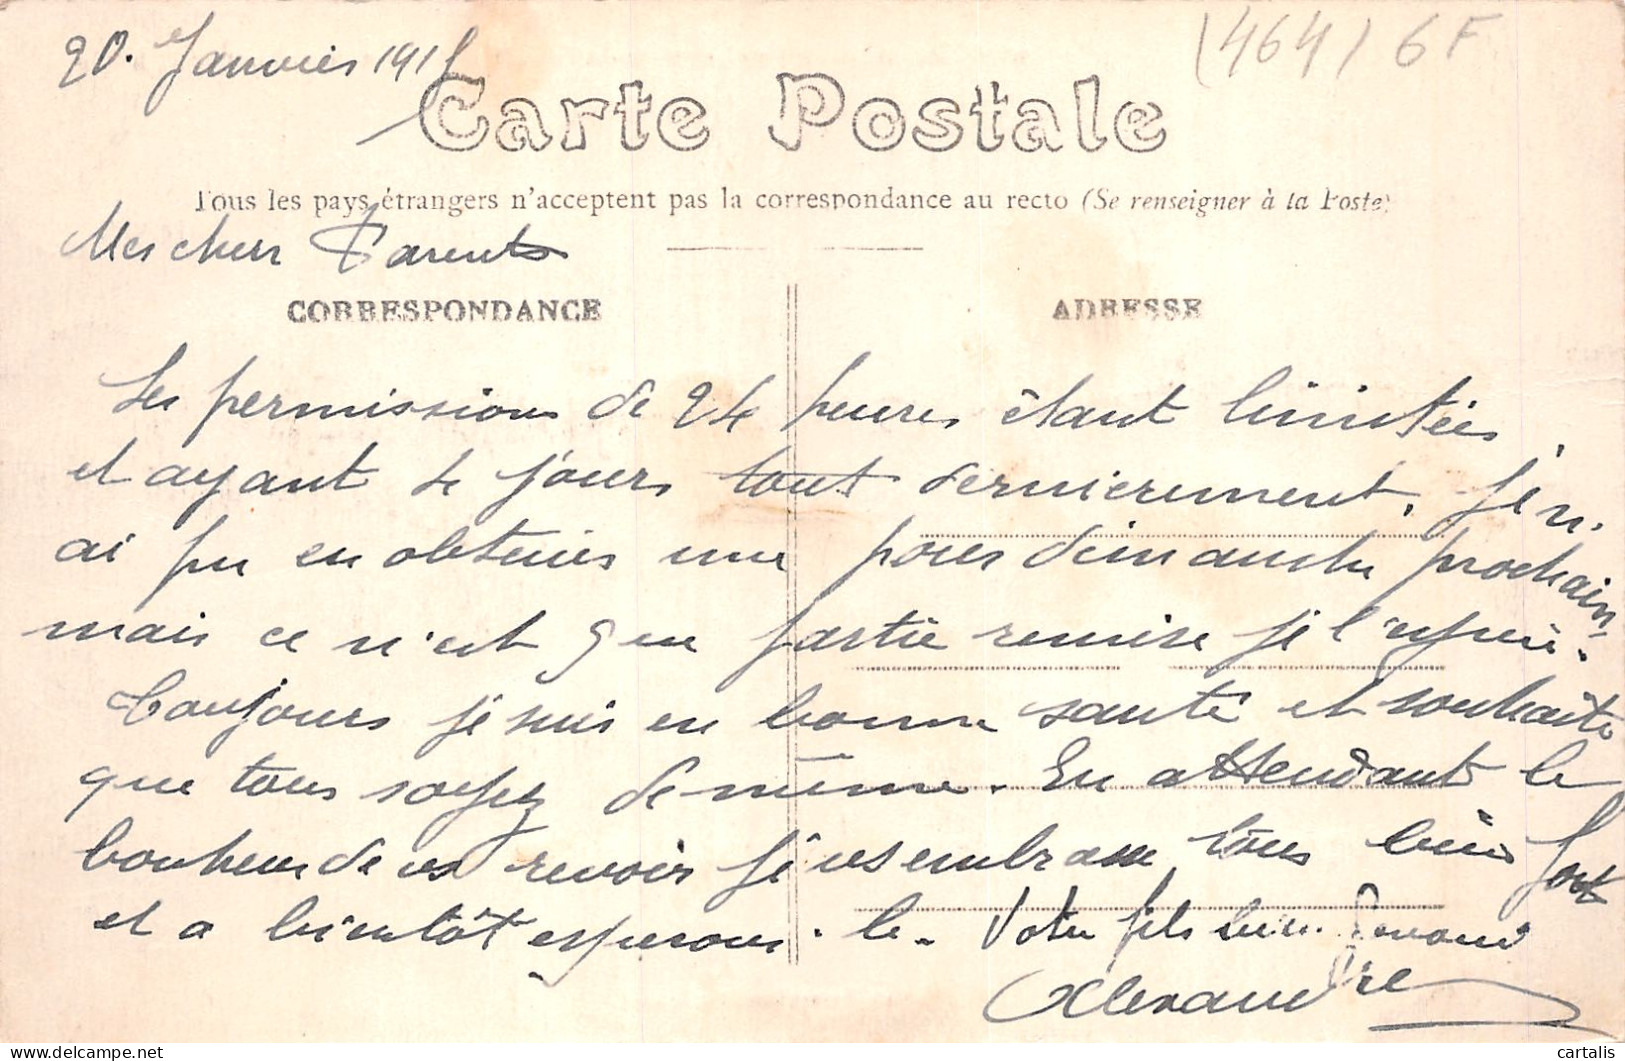 20. Janvier 191
(464) 6F
Carte Postale
Tous les pays étrangers n'acceptent pas la correspondance au recto (Se renseigner à la Poste)
Mes chers Parents
CORRESPONDANCE
ADRESSE
Les permissions de 24 heures étant limitées,
et ayant 4 jours tout dernierement, je n'
ai pu en obtenir une pour dimanche prochain
mais ce n'est que partie remise je l'espère.
Toujours je suis en bonne santé et souhaite
que tous soyez de même. En attendant le
bonheur de vs revoir je vs embrasse tous bien fort
et a bientôt esperons-le. Votre fils bien
Alexandre
cartalis